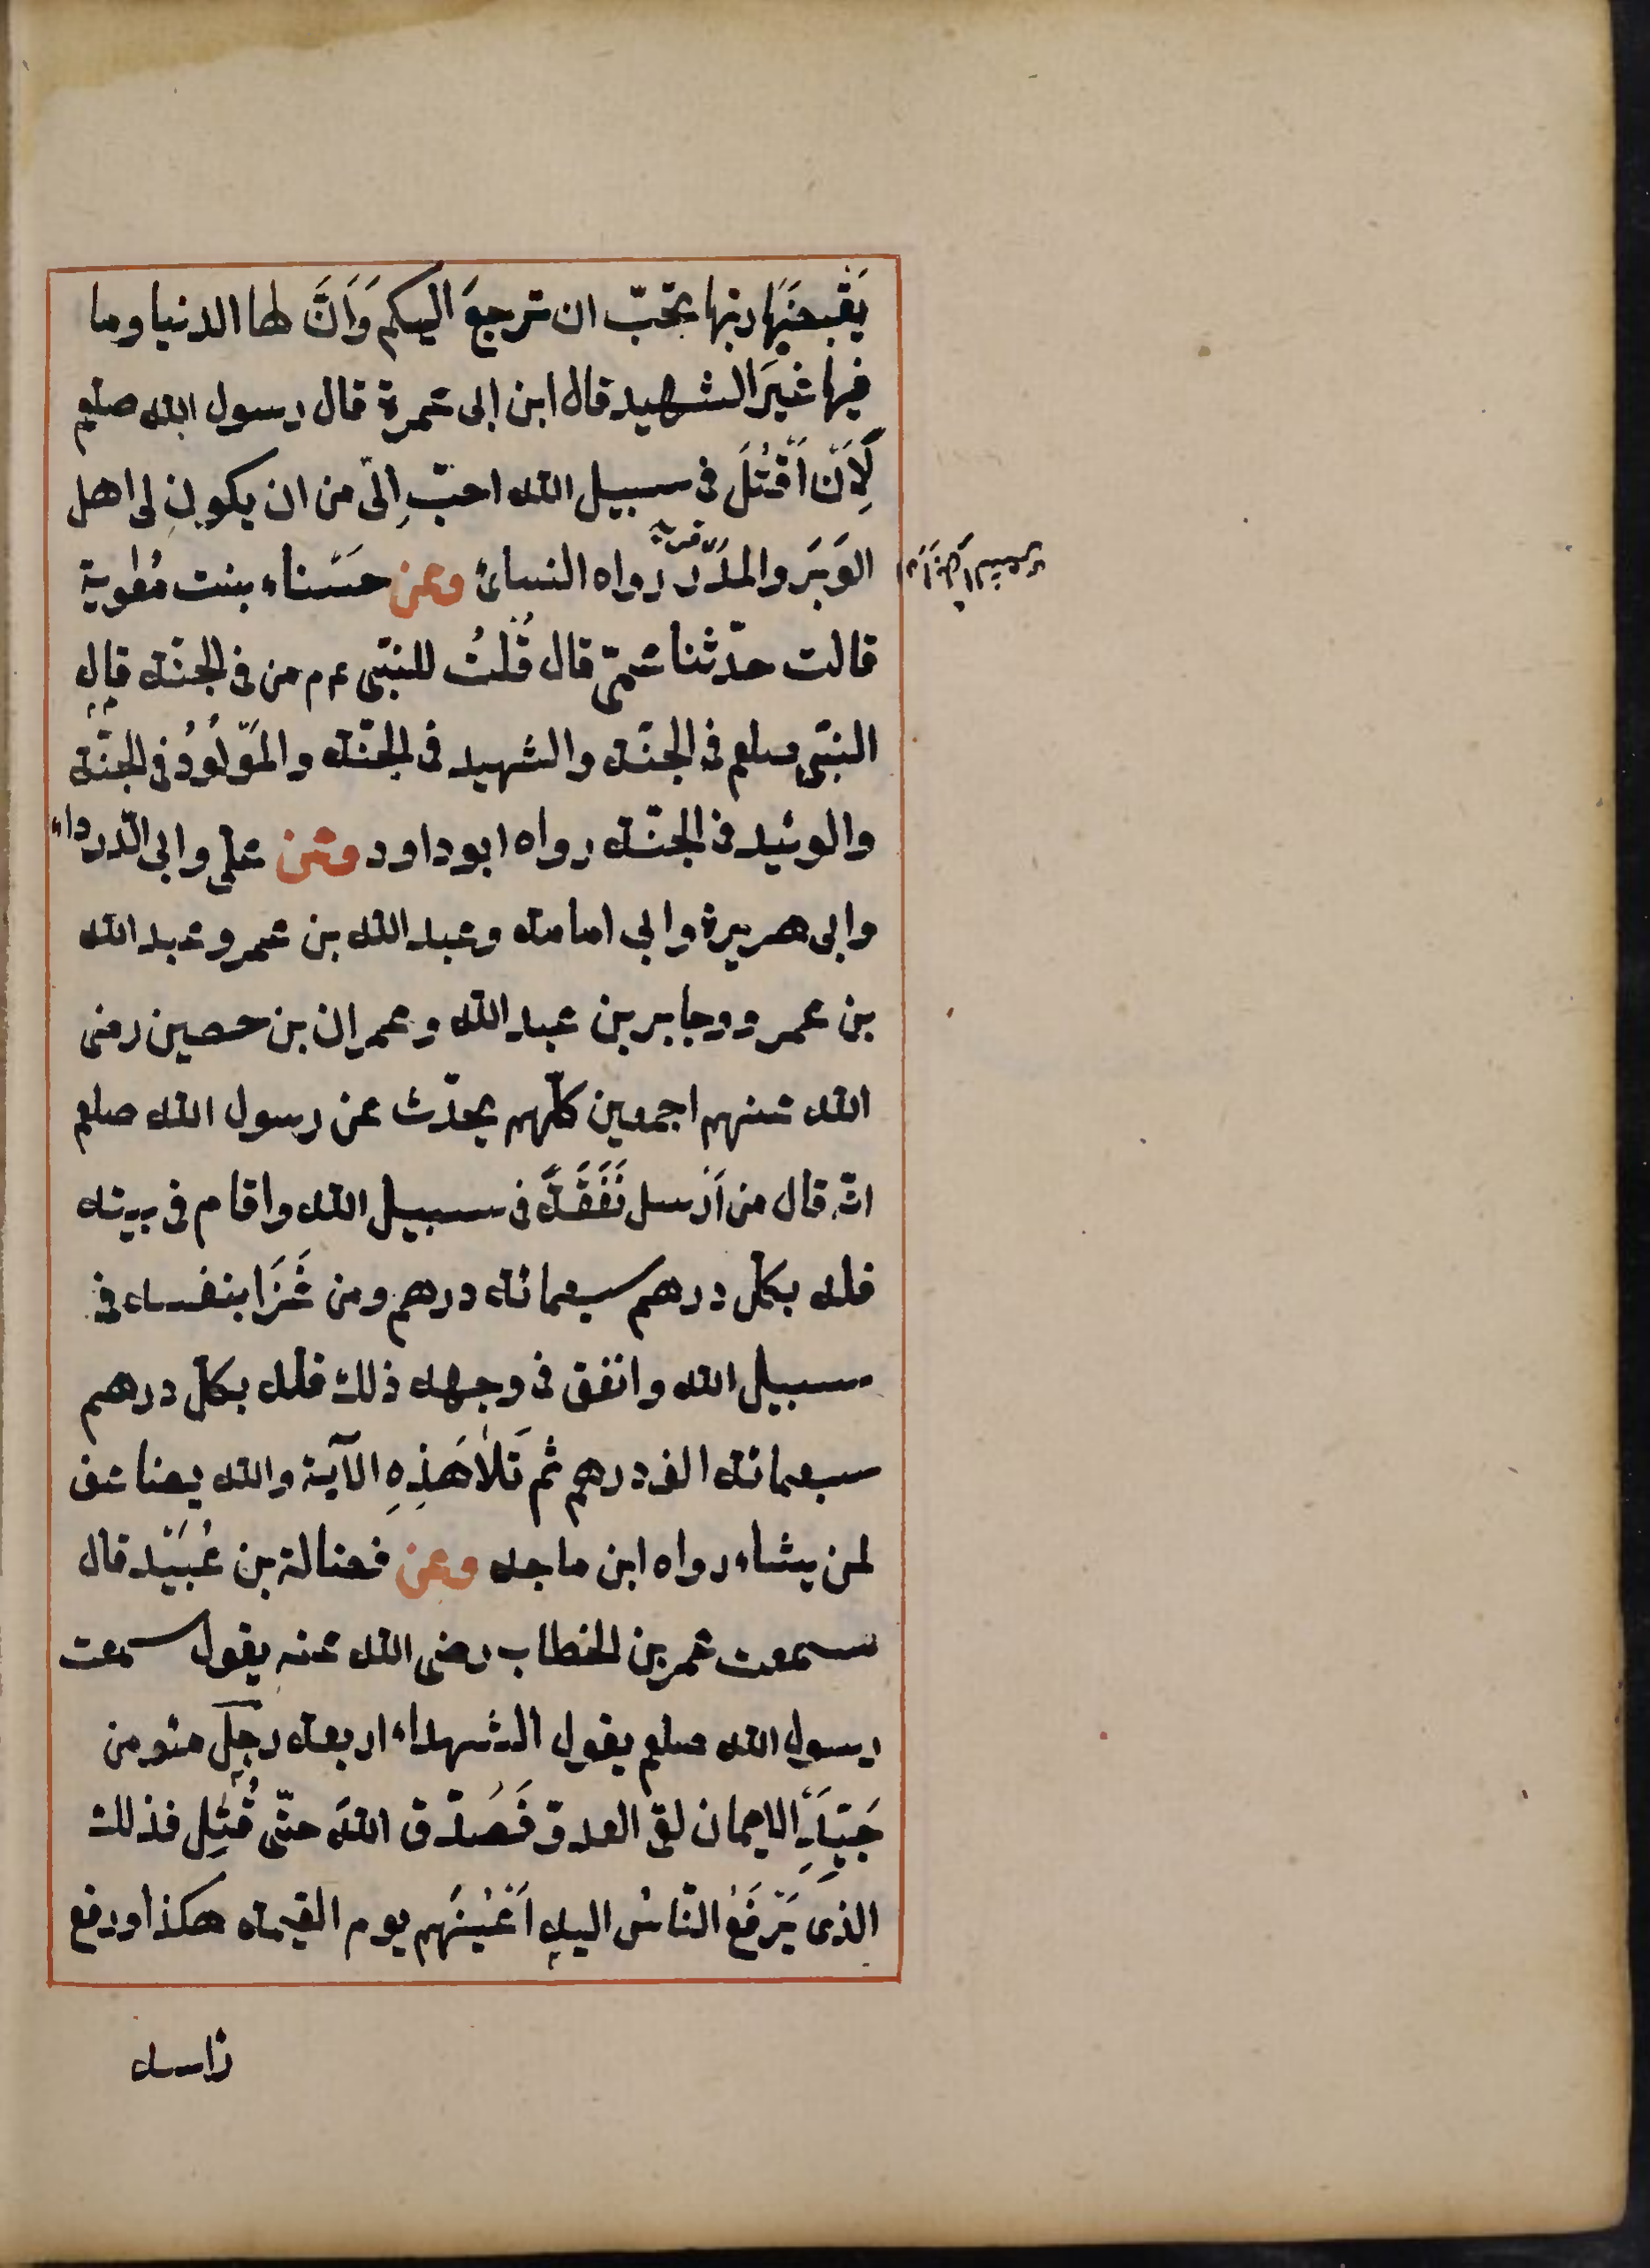 يَقْبِضُهَا ربها تحبّ ان ترجعَ اليكم وَاَنَّ لها الدنيا وما
فيها غَيرَ الشهيد قال ابن ابى عمرة قال رسول الله صلعم
لَاَنْ اُقْتَلَ فى سبيل الله احبّ اِلىّ من ان يكون لى اهل
الوَبَرَ والمدَر رواه النسائ وعن حَسْناء بنت مُعٰوية
قالت حدّثنا عمّى قال قُلْتُ للنبّى عم من فى الجنّة قال
النبّى صلعم فى الجنّة والشهيد فى الجنّة والمَوْلُوْدُ فى الجنّة
والوئيد فى الجنّة رواه ابو داود وعن على وابى الدّرداء
وابى هريرة وابى امامة وعبد الله بن عمر وعبد الله
بن عمرو وجابر بن عبد الله وعمران بن حصين رضى
الله عنهم اجمعين كلّهم يحدّث عن رسول الله صلعم
انّه قال من اَرْسل نَفَقَةً فى سبيل الله واقام فى بيته
فله بكلّ درهم سبعمائة درهم ومن غَزَا بنفسه فى
سبيل الله وانفق فى وجهه ذلك فله بكلّ درهم
سبعمائة الف درهم ثم تَلَا هَذِهِ الآية والله يضاعف
لمن يشاء رواه ابن ماجه وعن فضالة بن عُبَيْد قال
سمعت عمر بن الخطاب رضى الله عنه يقول سمعت
رسول الله صلعم يقول الشهداء اربعة رجل مؤمن
جَيِّدُ الايمان لقى العدوّ فَصَدّق اللهَ حتّى قُتِل فذلك
الذى يَرْفَعُ النّاسُ اليهِ اَعْيُنَهم يوم القيمة هكذا ورفع
رأسه